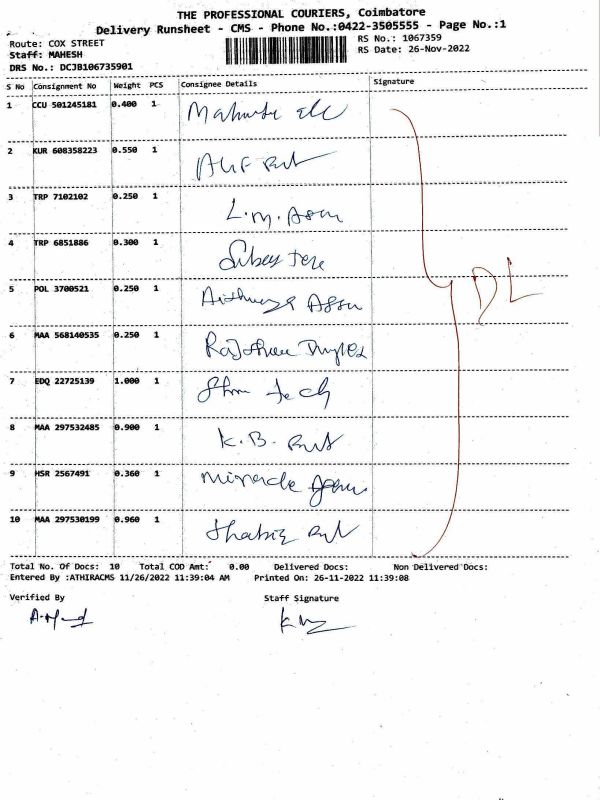 THE PROFESSIONAL COURIERS, Coimbatore
Delivery Runsheet - CMS - Phone No.:0422-3505555 - Page No.:1
Route: COX STREET
RS No.: 1067359
Staff: MAHESH
RS Date: 26-Nov-2022
DRS No.: DCJB106735901
S No Consignment No Weight PCS Consignee Details Signature
1 CCU 501245181 0.400 1
2 KUR 608358223 0.550 1
3 TRP 7102102 0.250 1 L.M. Assn
4 TRP 6851886 0.300 1
5 POL 3700521 0.250 1
6 MAA 568140535 0.250 1
7 EDQ 22725139 1.000 1 tech
8 MAA 297532485 0.900 1 K.B.
9 HSR 2567491 0.360 1 Miracle
10 MAA 297530199 0.960 1
DL
Total No. Of Docs: 10 Total COD Amt: 0.00 Delivered Docs: Non Delivered Docs:
Entered By :ATHIRACMS 11/26/2022 11:39:04 AM Printed On: 26-11-2022 11:39:08
Verified By Staff Signature